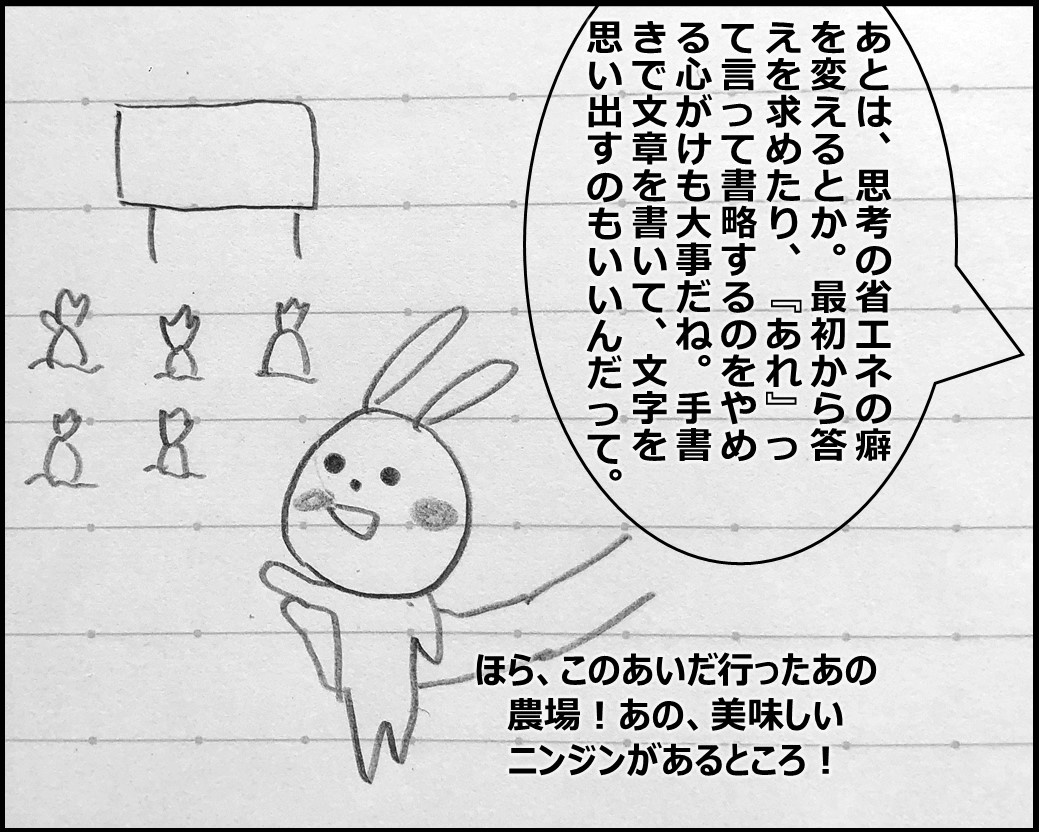 あとは、思考の省エネの癖
を変えるとか。最初から答
えを求めたり、『あれ』っ
て言って書略するのをやめ
る心がけも大事だね。手書
きで文章を書いて、文字を
思い出すのもいいんだって。
ほら、このあいだ行ったあの
農場！あの、美味しい
ニンジンがあるところ！